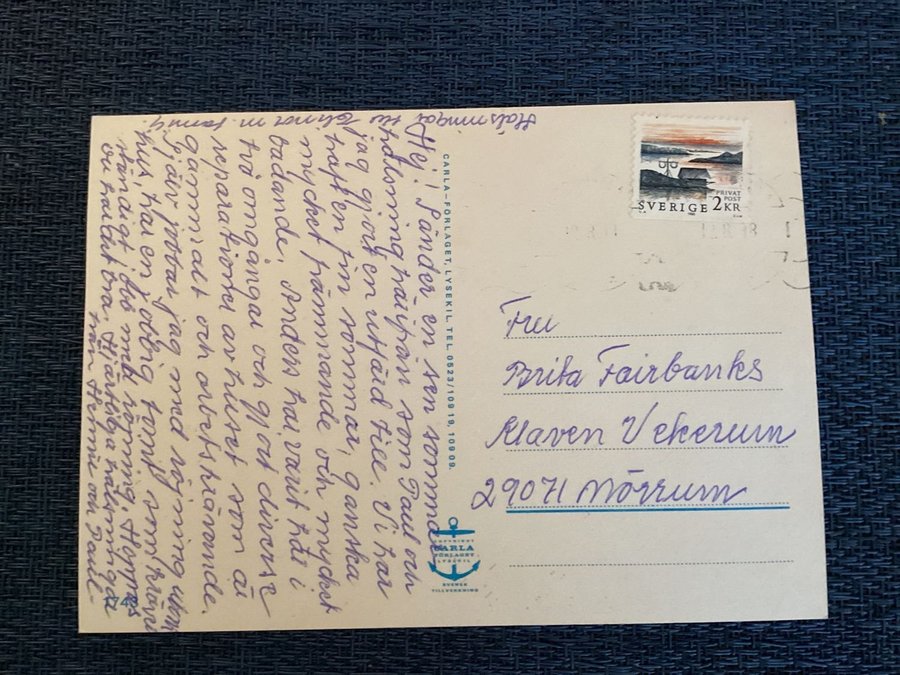 Hej! Sänder en sen sommar
hälsning härifrån som Paul och
jag gjort en utfärd till. Vi har
haft en fin sommar, ganska
mycket främmande och mycket
badande. Anders har varit här i
två omgångar och gjort diverse
reparationer av huset som är
gammalt och arbetskrävande.
Själv jag med
hus, här en
händigt med Hoppas
ni mår bra. Hjärtliga hälsningar
från och Paul
Hälsningar till m. familj.
CARLA-FÖRLAGET, LYSEKIL. TEL. 0523/10919, 10909.
COPYRIGHT
CARLA
FÖRLAGET
LYSEKIL
SVENSK
TILLVERKNING
PRIVAT
POST
SVERIGE 2KR
Fru
Brita Fairbanks
Klaven Vekerum
29071 Mörrum